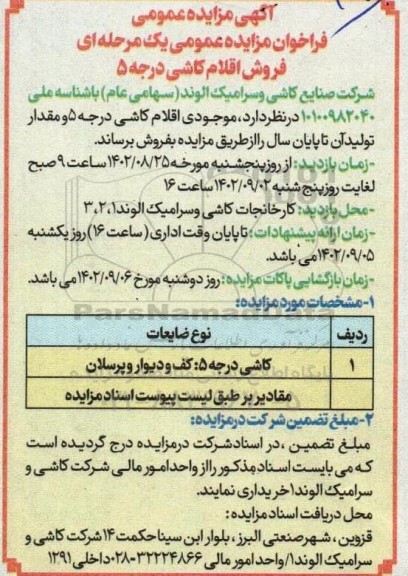 آگهی مزایده عمومی
فراخوان مزایده عمومی یک مرحله ای
فروش اقلام کاشی درجه ۵
شرکت صنایع کاشی و سرامیک الوند (سهامی عام) با شناسه ملی
۱۰۱۰۰۹۸۲۰۴۰ در نظر دارد، موجودی اقلام کاشی درجه ۵ و مقدار
تولید آن تا پایان سال را از طریق مزایده بفروش برساند.
-زمان بازدید: از روز پنجشنبه مورخه ۱۴۰۲/۰۸/۲۵ ساعت ۹ صبح
لغایت روز پنج شنبه ۱۴۰۲/۰۹/۰۲ ساعت ۱۶
-محل بازدید: کارخانجات کاشی و سرامیک الوند ۱، ۲، ۳
-زمان ارائه پیشنهادات: تا پایان وقت اداری (ساعت ۱۶) روز یکشنبه
۱۴۰۲/۰۹/۰۵ می باشد.
-زمان بازگشایی پاکات مزایده: روز دوشنبه مورخ ۱۴۰۲/۰۹/۰۶ می باشد.
۱-مشخصات مورد مزایده:
ردیف نوع ضایعات
۱ کاشی درجه ۵: کف و دیوار و پرسلان
مقادیر بر طبق لیست پیوست اسناد مزایده
۲-مبلغ تضمین شرکت در مزایده:
مبلغ تضمین، در اسناد شرکت در مزایده درج گردیده است
که می بایست اسناد مذکور را از واحد امور مالی شرکت کاشی و
سرامیک الوند ۱ خریداری نمایند.
محل دریافت اسناد مزایده:
قزوین، شهر صنعتی البرز، بلوار ابن سینا حکمت ۱۴ شرکت کاشی و
سرامیک الوند ۱/ واحد امور مالی ۳۲۲۲۴۸۶۶-۰۲۸ داخلی ۱۲۹۱
ParsNamadData